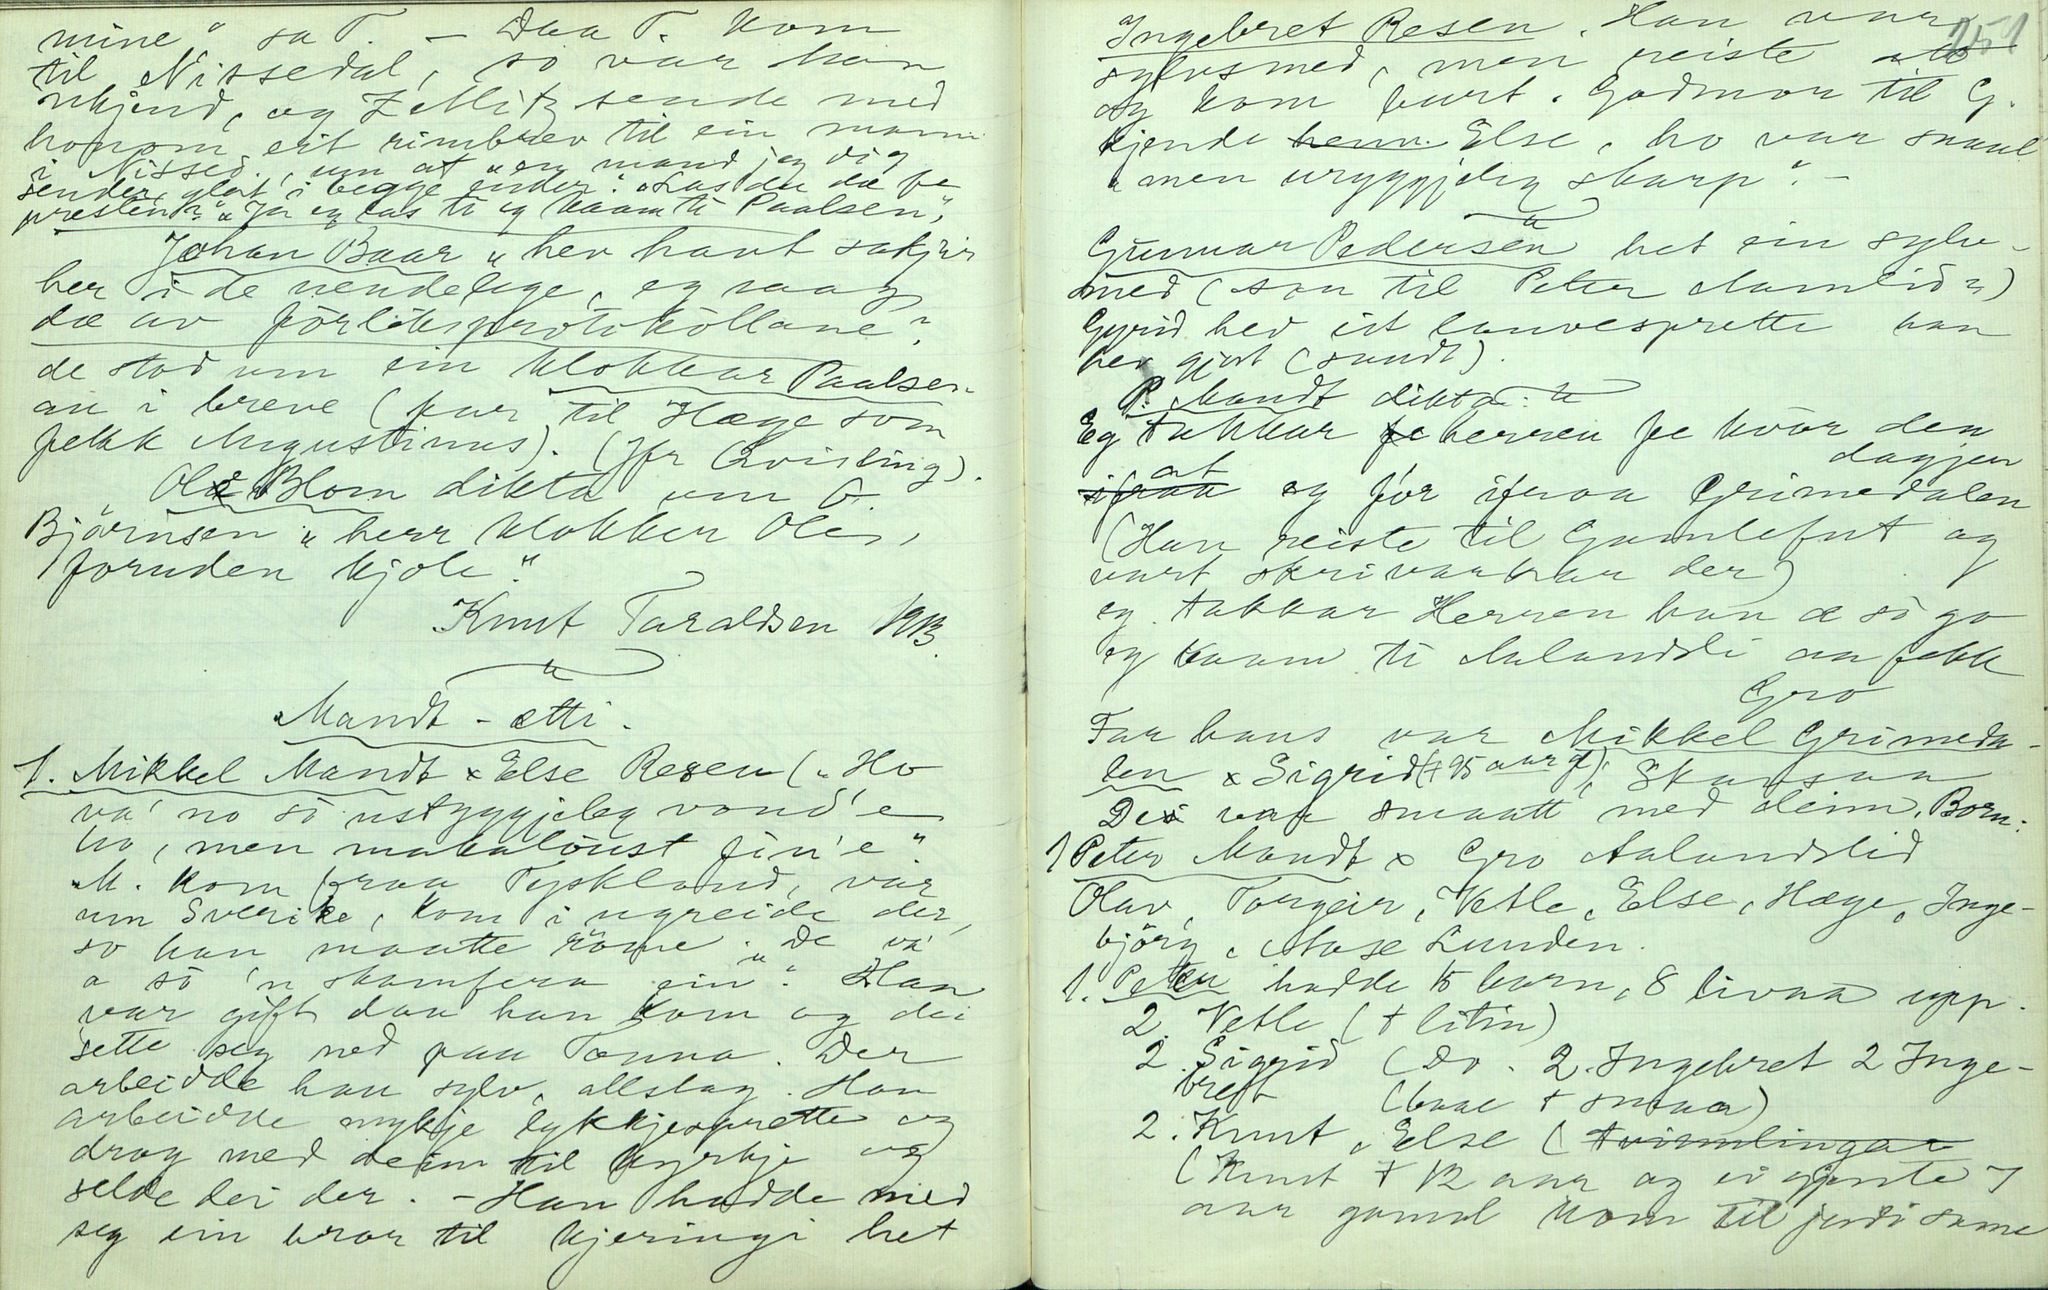 mine" sa T. – Daa T. kom
til Nissedal, so var han
ukjend, og Zeblitz sende med
honom eit rimbrev til ein mann
i Nissed., um at "en mand jeg dig
sender, glat i begge ender". "Las du dæ fe
presten?" "Ja eg las ti eg kaam ti Paalsen".
Johan Baar "hev havt sakjir
her i de uendelege, eg saag
dæ av forliksprotokollane",
de stod um ein klokkar Paalsen
au i breve (far til Hæge som
fekk Augustinus). (Jfr Qvisling).
Ola Blom dikta um O.
Björnsen "herr klokker Ole,
foruden kjole".
Knut Taraldsen 1913.
Mandt-ætti.
1. Mikkel Mandt x Else Resen ("Ho
va' no so ustyggjeleg vond'e
ho, men makalöust fin'e".
M. kom fraa Tyskland, var
um Sverike, kom i ugreide der,
so han maatte röme. "De va'
a so 'n skamfera ein". Han
var gift daa han kom og dei
sette seg ned paa Tænna. Der
arbeidde han sylv, allslag. Han
arbeidde mykje lykkjesprette og
drog med deim til kyrkje og
selde dei der. – Han hadde med
seg ein bror til kjeringi het
251
Ingebret Resen. Han var
sylvsmed, men reiste ut
og kom burt. Godmor til G.
kjende henn. Else, ho var snaal
"men uryggjeleg skarp". –
Gunnar Pedersen het ein sylv-
smed (son til Peter Aamlid?)
Gyrid hev eit lauvesprette han
hev gjort (Sundt).
P. Mandt dikta:
Eg takkar fe herren fe kvor den
dagjen
ifraa at eg for ifraa Grimedalen
(Han reiste til Gamlefut og
vart skrivarkar der)
eg takkar Herren han æ so go
eg kaam ti Aalandsli aa fekk
Gro
Far hans var Mikkel Grimeda-
len x Sigrid (+ 95 aar g.) i Skarsaa
De var smaatt med deim. Born:
1 Peter Mandt x Gro Aalandslid
Olav, Torgeir, Vetle, Else, Hæge, Inge-
björg, Aase Lunden.
1. Peter hadde 15 barn, 8 livaa upp.
2. Vetle (+ litin)
2. Sigrid (Do. 2. Ingebret 2 Inge-
bret (baae + smaa)
2. Knut, Else (tvismlingar
(Knut + 12 aar og ei gjente 7
aar gamal kom til jordi same